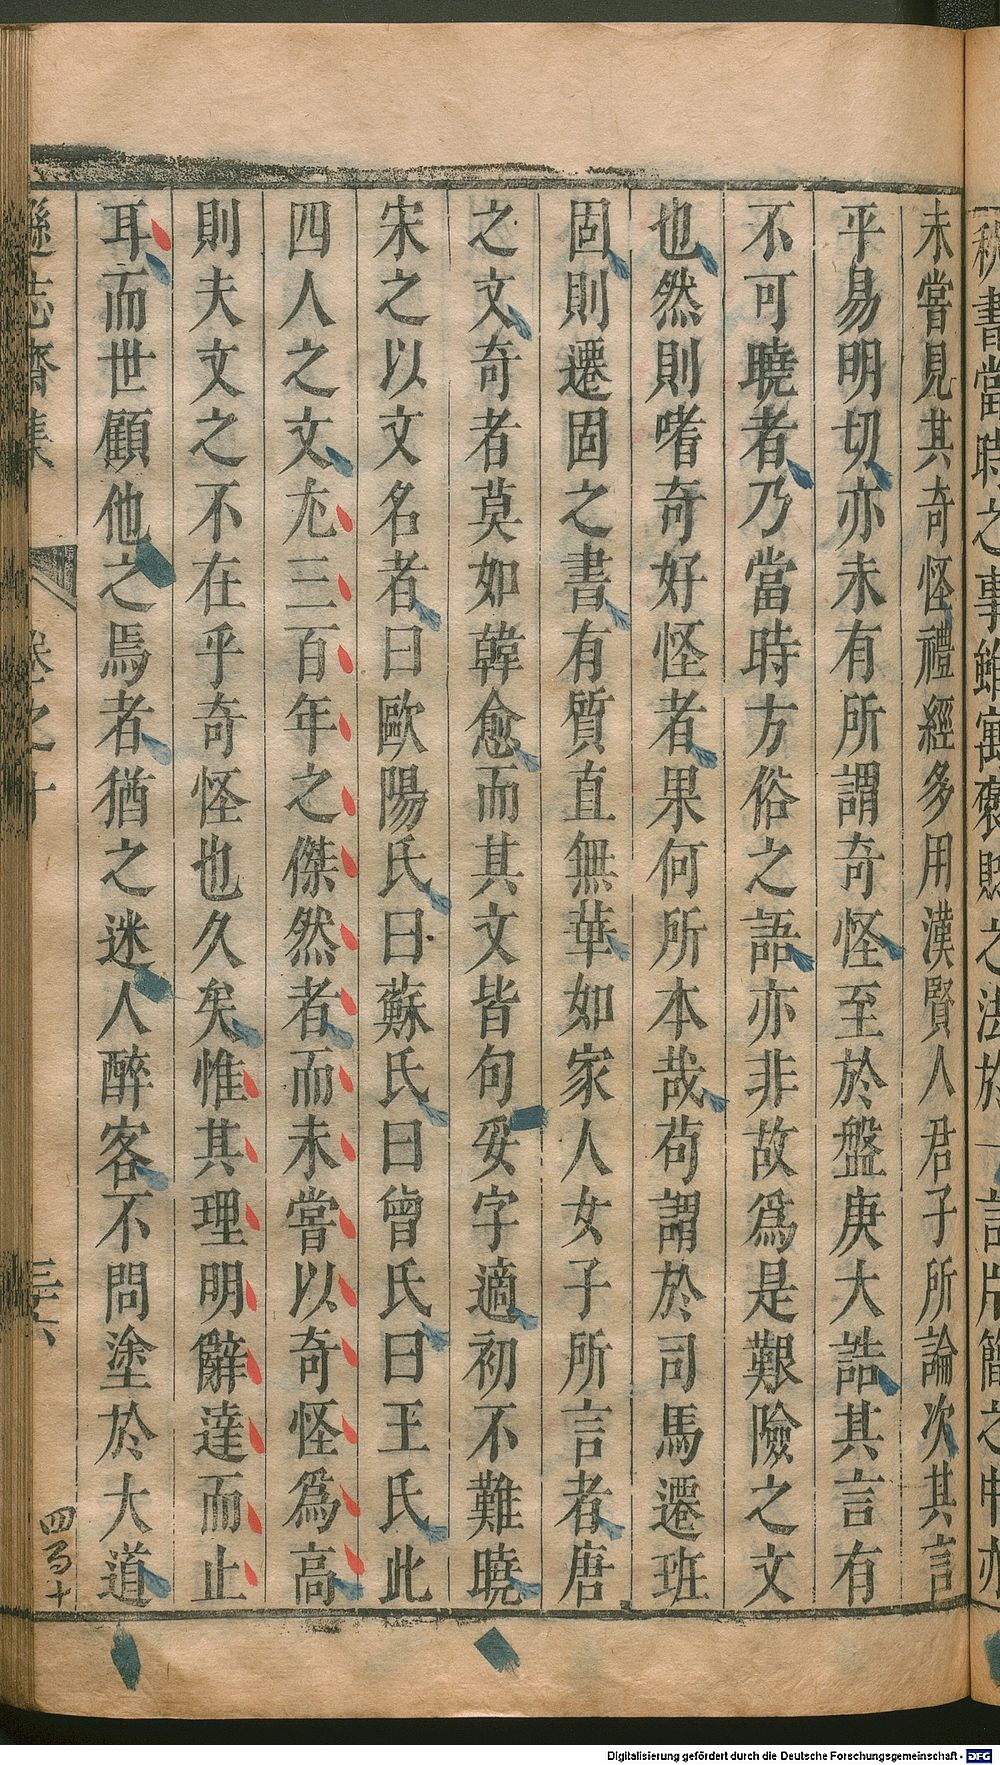 秋書當時之事雖寓褒貶之法於一言片簡之中亦
未嘗見其奇怪禮經多用漢賢人君子所論次其言
平易明切亦未有所謂奇怪至於盤庚大誥其言有
不可曉者乃當時方俗之語亦非故爲是艱險之文
也然則嗜奇好怪者果何所本哉苟謂於司馬遷班
固則遷固之書有質直無華如家人女子所言者唐
之文奇者莫如韓愈而其文皆句妥字適初不難曉
宋之以文名者曰歐陽氏曰蘇氏曰曾氏曰王氏此
四人之文尤三百年之傑然者而未嘗以奇怪爲高
則夫文之不在乎奇怪也久矣惟其理明辭達而止
耳而世顧他之焉者猶之迷人醉客不問塗於大道
遜志齋集 卷之十 三十六 四百十
Digitalisierung gefördert durch die Deutsche Forschungsgemeinschaft - DFG